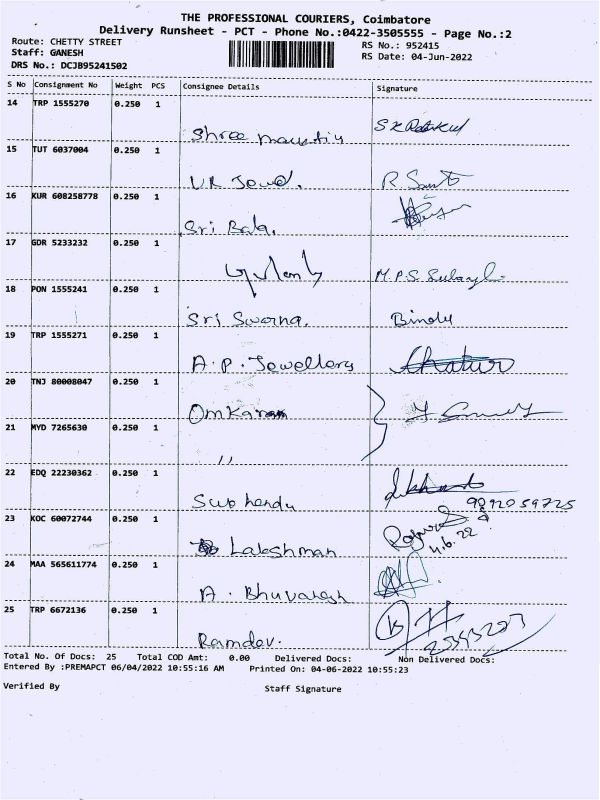 THE PROFESSIONAL COURIERS, Coimbatore
Delivery Runsheet - PCT - Phone No.:0422-3505555 - Page No.:2
Route: CHETTY STREET RS No.: 952415
Staff: GANESH RS Date: 04-Jun-2022
DRS No.: DCJB95241502
S No Consignment No Weight PCS Consignee Details Signature
14 TRP 1555270 0.250 1
Shree
15 TUT 6037004 0.250 1
VR Jewel.
16 KUR 608258778 0.250 1
Sri Bala.
17 GDR 5233232 0.250 1
M.P.S.
18 PON 1555241 0.250 1
Sri Swarna. Bindu
19 TRP 1555271 0.250 1
A.P. Jewellers
20 TNJ 80008047 0.250 1
Omkaram
21 MYD 7265630 0.250 1
,,
22 EDQ 22230362 0.250 1
Subhendu 9892059725
23 KOC 60072744 0.250 1
Lakshman 4.6.22
24 MAA 565611774 0.250 1
A. Bhuvanesh
25 TRP 6672136 0.250 1
Ramdev.
Total No. Of Docs: 25 Total COD Amt: 0.00 Delivered Docs: Non Delivered Docs:
Entered By :PREMAPCT 06/04/2022 10:55:16 AM Printed On: 04-06-2022 10:55:23
Verified By Staff Signature